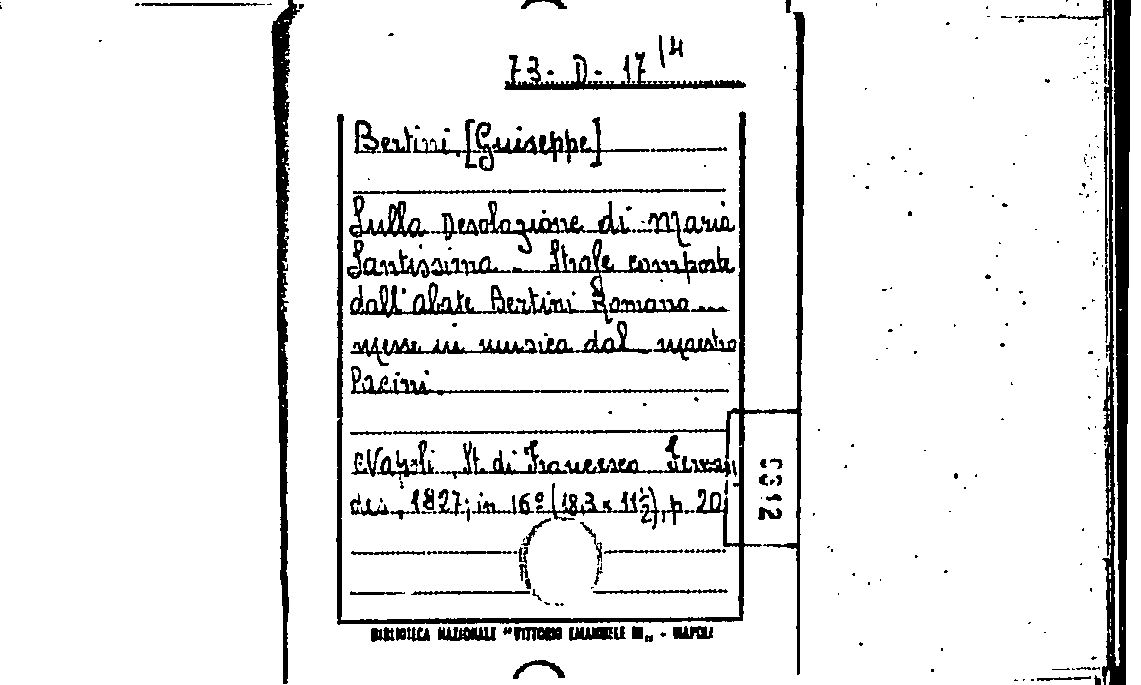 73 - D - 17 14
Bertini [Guiseppe]
Sulla Desolazione di Maria
Santissima - Strofe composte
dall'abate Bertini Romano...
messe in musica dal maestro
Pacini.
Napoli, St. di Francesco Fernan
des, 1827; in 16º (18,3 x 11½), p. 20
BIBLIOTECA NAZIONALE "VITTORIO EMANUELE III" - NAPOLI